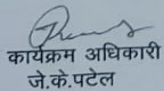 कार्यक्रम अधिकारी
जे.के.पटेल